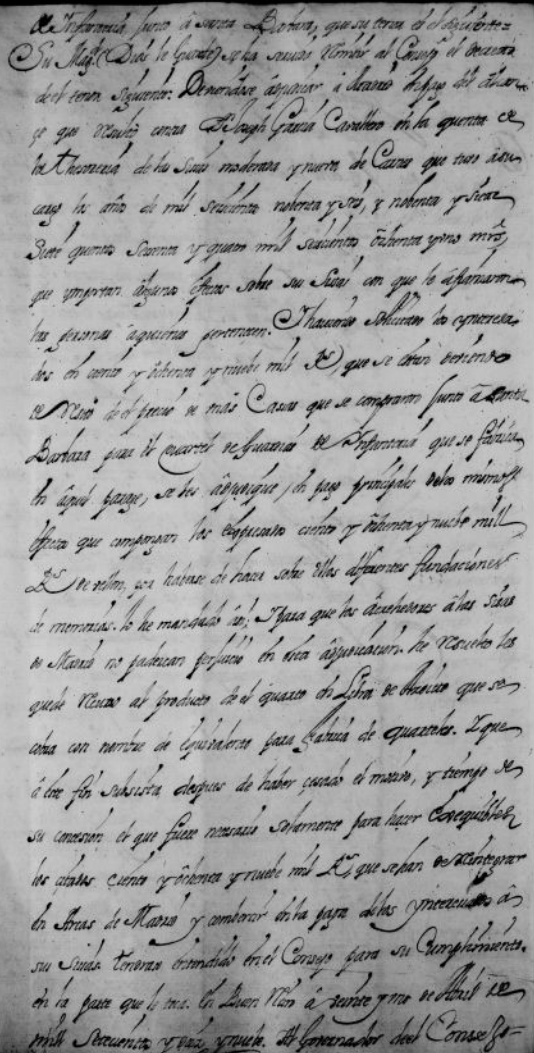 de Infanteria junto a Santa Barbara, que su tenor es el siguiente=
Su Magd. (Dios le Guarde) se ha servido remitir al Consejo el Decreto
de el tenor siguiente. Deviendose a Madrid del alcan
ze que resulto contra Dn. Joseph Garcia Cavallero en la quenta de
la Thesoreria de las Sisas moderada y nueva de Carne que tuvo a su
cargo los años de mil seiscientos noventa y seis, y noventa y siete
Siete quentos setenta y quatro mil seiscientos ochenta y uno mrs,
que ymportan algunos efectos sobre sus Sisas con que lo afianzaron
las personas a quienes pertenecen. I haviendo solicitado los ynteresa
dos en ciento y ochenta y nueve mil Rs, que se estan deviendo
de resto de el precio de mas Casas que se compraron junto a Santa
Barbara para el quartel de Guardias de Infanteria que se fabrica
en aquel parage, se les adjudique, en pago principales de los mismos
efectos que compongan los expresados ciento y ochenta y nueve mill
Rs. de vellon, por haberse de hacer sobre ellos diferentes fundaciones
de memorias. Lo he mandado asi; I para que los acrehedores a las sisas
de Madrid no padezcan perjuicio en esta adjudicacion. He resuelto les
quede al producto de el quarto en Libra de que se
cobra con nombre de equivalente para fabrica de quarteles. I que
a este fin subsista despues de haber cesado el motivo, y tiempo de
su concesion el que fuere necesario solamente para hacer exequibles
los citados ciento y ochenta y nueve mil Rs, que se han de reintegrar
en Arcas de Madrid y combertir en la paga de los ynteresados a
sus Sisas. Tendrase entendido en el Consejo para su Cumplimiento.
en la parte que le toca. En Buen Retiro a veinte y uno de Abril de
mill setecientos y diez y nueve. Al Governador de el Consejo=